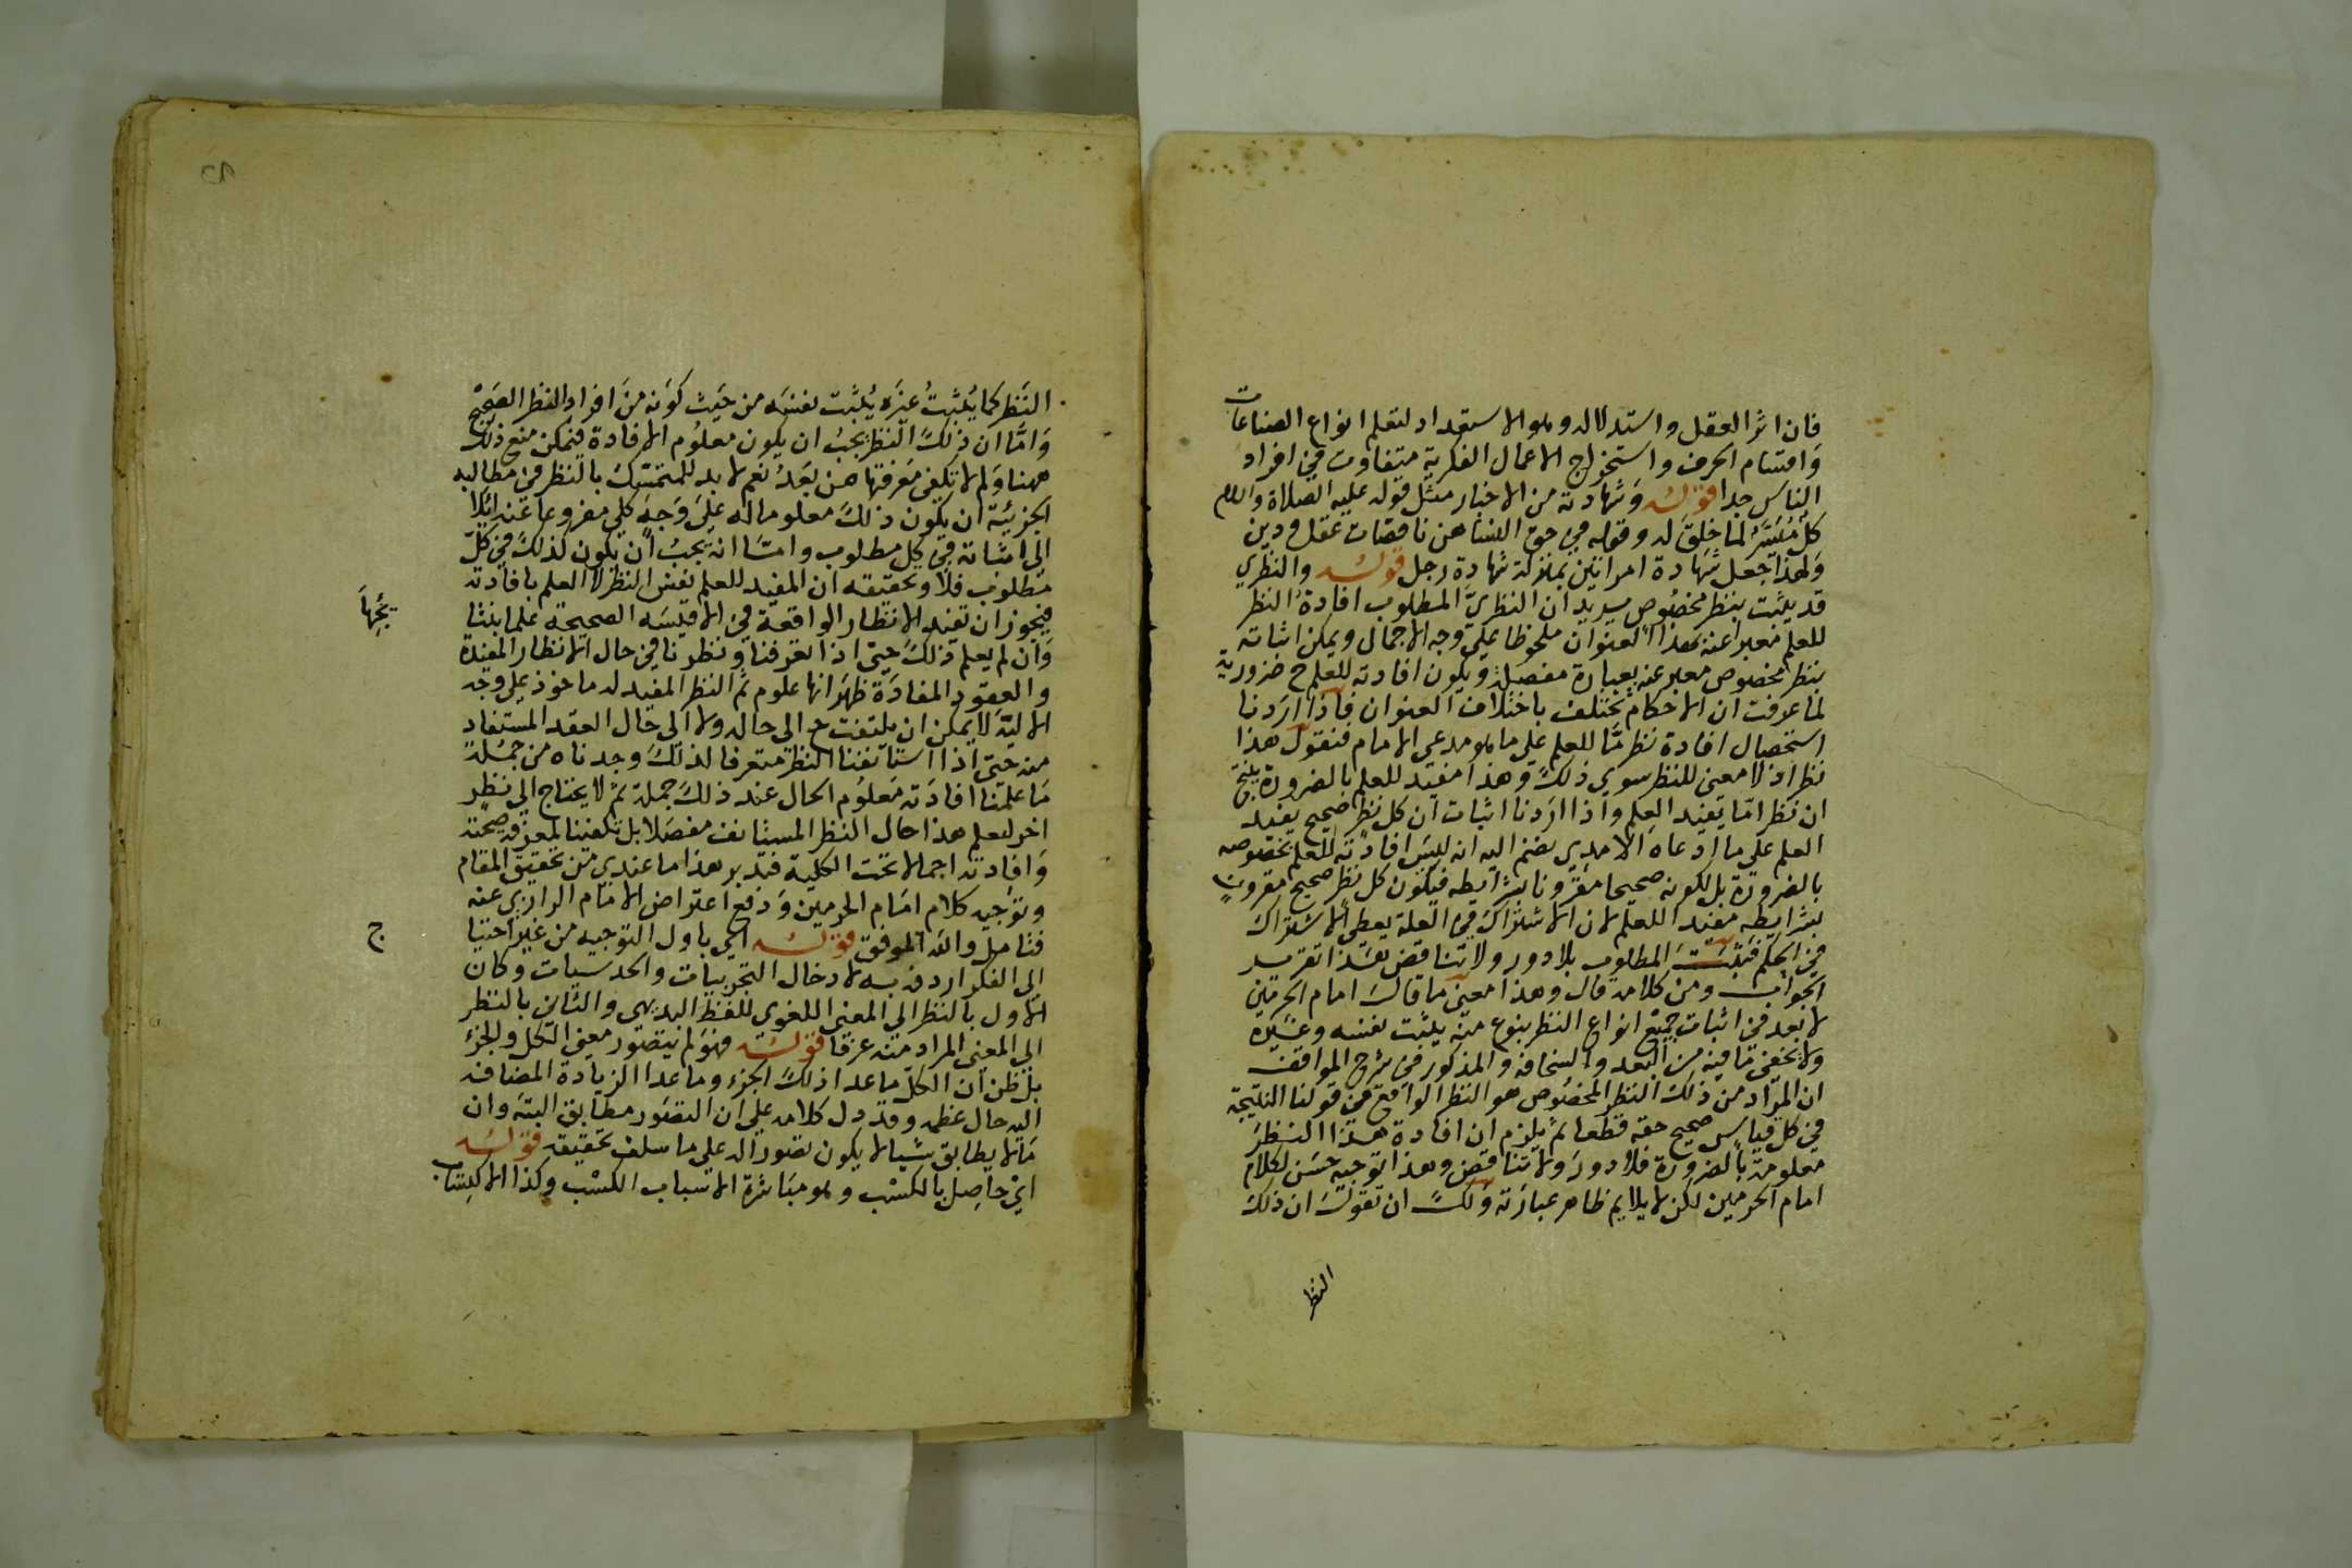 فان اثر العقل واستدلاله وهو الاستعداد لتعلم انواع الصناعات
وَاقتسام الحرف واستخراج الاعمال الفكرية متفاوت في افراد
الناس جدا قوله وشهادته من الاخبار مثل قوله عليه الصلاة والسلام
كل مُيَسَّر لما خلق له وقوله في حق النسا هن ناقصات عقل ودين
ولهذا جعل شهادة امراتين بمنزلة شهادة رجل قوله والنظري
قد يثبت بنظر مخصوص يريد ان النظريّ المطلوب افادة النظر
للعلم معبرا عنه بهذا العنوان ملحوظا علي وجه الاجمال ويمكن اثباته
بنظر مخصوص معبر عنه بعبارة مفصلة ويكون افادته للعلم ح ضرورية
لما عرفت ان الاحكام تختلف باختلاف العنوان فاذا اردنا
استحصال افادة نظر مّا للعلم علي ما هو مدعي الامام فنقول هذا
نظر اذ لا معني للنظر سوي ذلك وهذا مفيد للعلم بالضرورة ينتج
ان نظرا مّا يفيد العلم واذا اردنا اثبات ان كل نظر صحيح يفيد
العلم علي ما ادعاه الامدي نضم اليه انه ليس افادته للعلم بخصوصه
بالضرورة بل لكونه صحيحا مقرونا بشرايطه فيكون كل نظر صحيح مقرون
بشرايطه مفيدا للعلم لان الاشتراك في العلة يعطي الاشتراك
في الحكم فيثبت المطلوب بلا دور ولا تناقض هذا تقرير
الجواب ومن كلامه قال وهذا معني ما قال امام الحرمين
لا بعد في اثبات جميع انواع النظر بنوع منه يثبت نفسه وغيره
ولا يخفي ما فيه من البعد والسخافة والمذكور في شرح المواقف
ان المراد من ذلك النظر المخصوص هو النظر الواقع في قولنا النتيجة
في كل قياس صحيح حقه قطعا ثم يلزم ان افادة هذا النظر
معلومة بالضرورة فلا دور ولا تناقض وهذا توجيه حسن لكلام
امام الحرمين لكن لا يلايم ظاهر عبارته ولك ان تقول ان ذلك
النظر
النظر كما يُثبتُ غيره يُثبت نفسه من حيث كونه من افراد النظر الصحيح
وَامّا ان ذلك النظر يجب ان يكون معلوم الافادة فيمكن منع ذلك
ههنا ولم لا تكفي معرفتها من بعد نعم لا بد للمتمسك بالنظر في مطالبه
الجزئية ان يكون ذلك معلوما له علي وجه كلي مفروعا عنه لئلا
الي اثباته في كل مطلوب وامّا انه يجب ان يكون كذلك في كل
مطلوب فلا وتحقيقه ان المفيد للعلم نفس النظر لا العلم بافادته
فيجوز ان تفيد الانظار الواقعة في الاقيسه الصحيحة علما بنتا
يجها
وان لم يعلم ذلك حتي اذا تعرفنا ونظرنا في حال الانظار المفيدة
والعقود المفادة ظهر انها علوم ثم النظر المفيد له ماخوذ علي وجه
الالية لا يمكن ان يلتفت ح الي حاله ولا الي حال العقد المستفاد
منه حتي اذا استانفنا النظر متعرفا لذلك وجدناه من جملة
ما علمنا افادته معلوم الحال عند ذلك جملة ثم لا يحتاج الي نظر
اخر لعلم هذا حال النظر المستانف مفصلا بل تكفينا لمعرفة صحته
وَافادته اجمالا تحت الكلية فتدبر هذا ما عندي من تحقيق المقام
وتوجيه كلام امام الحرمين ودفع اعتراض الامام الرازي عنه
فتامل والله الموفق قوله اي باول التوجيه من غير احتيا
ج
الي الفكر اردفه به لادخال التجربيات والحدسيات وكان
الاول بالنظر الي المعني اللغوي للفظ البديهي والثاني بالنظر
الي المعني المراد منه عرفا قوله فهو لم يتصور معني الكل والجزء
بل ظن ان الكل ما عدا ذلك الجزء وما عدا الزيادة المضافة
اليه حال عظمه وقد دل كلامه علي ان التصور مطابق البتة وان
ما لا يطابق شيا لا يكون تصورا له علي ما سلف تحقيقه قوله
اي حاصل بالكسب وهو مباشرة الاسباب الكسب وكذا الاكتساب